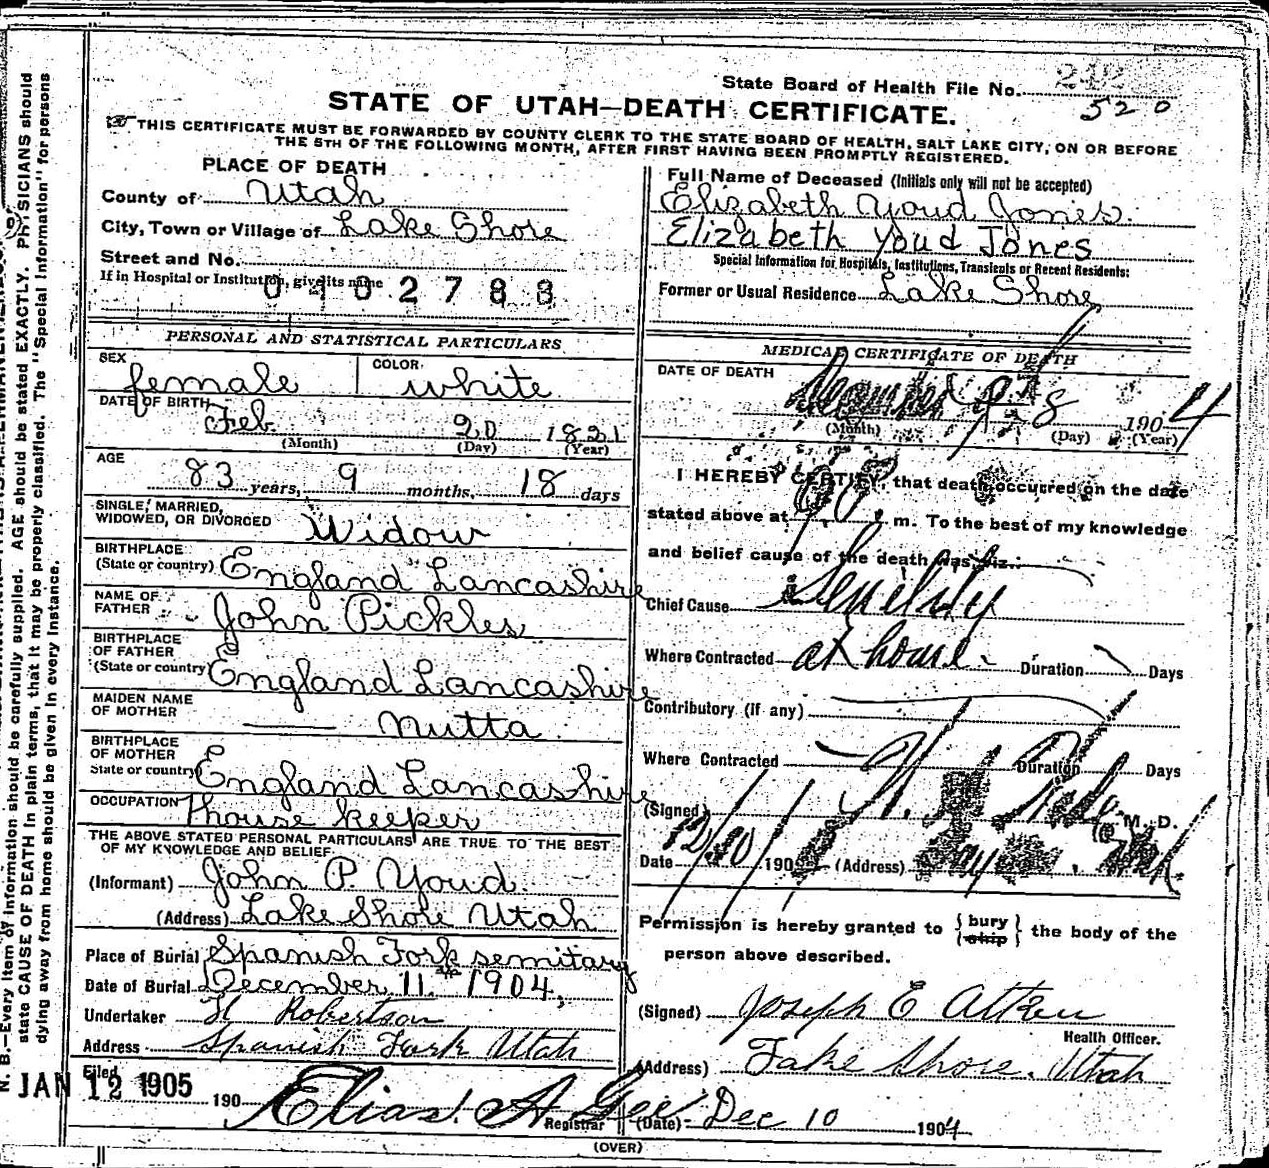 State Board of Health File No. 
520
STATE OF UTAH—DEATH CERTIFICATE.
THIS CERTIFICATE MUST BE FORWARDED BY COUNTY CLERK TO THE STATE BOARD OF HEALTH, SALT LAKE CITY, ON OR BEFORE
THE 5TH OF THE FOLLOWING MONTH, AFTER FIRST HAVING BEEN PROMPTLY REGISTERED.
PLACE OF DEATH
County of Utah
City, Town or Village of Lake Shore
Street and No.
If in Hospital or Institution, give its name
0102788
Full Name of Deceased (Initials only will not be accepted)
Elizabeth Youd Jones.
Elizabeth Youd Jones
Special Information for Hospitals, Institutions, Transients or Recent Residents:
Former or Usual Residence Lake Shore
PERSONAL AND STATISTICAL PARTICULARS
SEX female COLOR white
DATE OF BIRTH Feb 20 1821
(Month) (Day) (Year)
AGE 83 years, 9 months, 18 days
SINGLE, MARRIED,
WIDOWED, OR DIVORCED Widow
BIRTHPLACE
(State or country) England Lancashire
NAME OF
FATHER John Pickles
BIRTHPLACE
OF FATHER
(State or country) England Lancashire
MAIDEN NAME
OF MOTHER — Nutta
BIRTHPLACE
OF MOTHER
State or country England Lancashire
OCCUPATION house keeper
THE ABOVE STATED PERSONAL PARTICULARS ARE TRUE TO THE BEST
OF MY KNOWLEDGE AND BELIEF
(Informant) John P. Youd.
(Address) Lake Shore Utah
Place of Burial Spanish Fork semitary
Date of Burial December 11. 1904,
Undertaker H Robertson
Address Spanish Fork Utah
Filed JAN 12 1905 190
Elias A Gee
Registrar
MEDICAL CERTIFICATE OF DEATH
DATE OF DEATH December 8 1904
(Month) (Day) (Year)
I HEREBY CERTIFY, that death occurred on the date
stated above at m. To the best of my knowledge
and belief cause of the death was viz.:
Chief Cause Senility
Where Contracted at home Duration Days
Contributory (if any)
Where Contracted Duration Days
(Signed) M. D.
Date 190 (Address)
Permission is hereby granted to { bury } the body of the
{ ship }
person above described.
(Signed) Joseph E Aitken
Health Officer.
(Address) Lake Shore. Utah
(Date) Dec 10 1904
(OVER)
N. B.—Every item of information should be carefully supplied. AGE should be stated EXACTLY. PHYSICIANS should
state CAUSE OF DEATH in plain terms, that it may be properly classified. The "Special Information" for persons
dying away from home should be given in every instance.